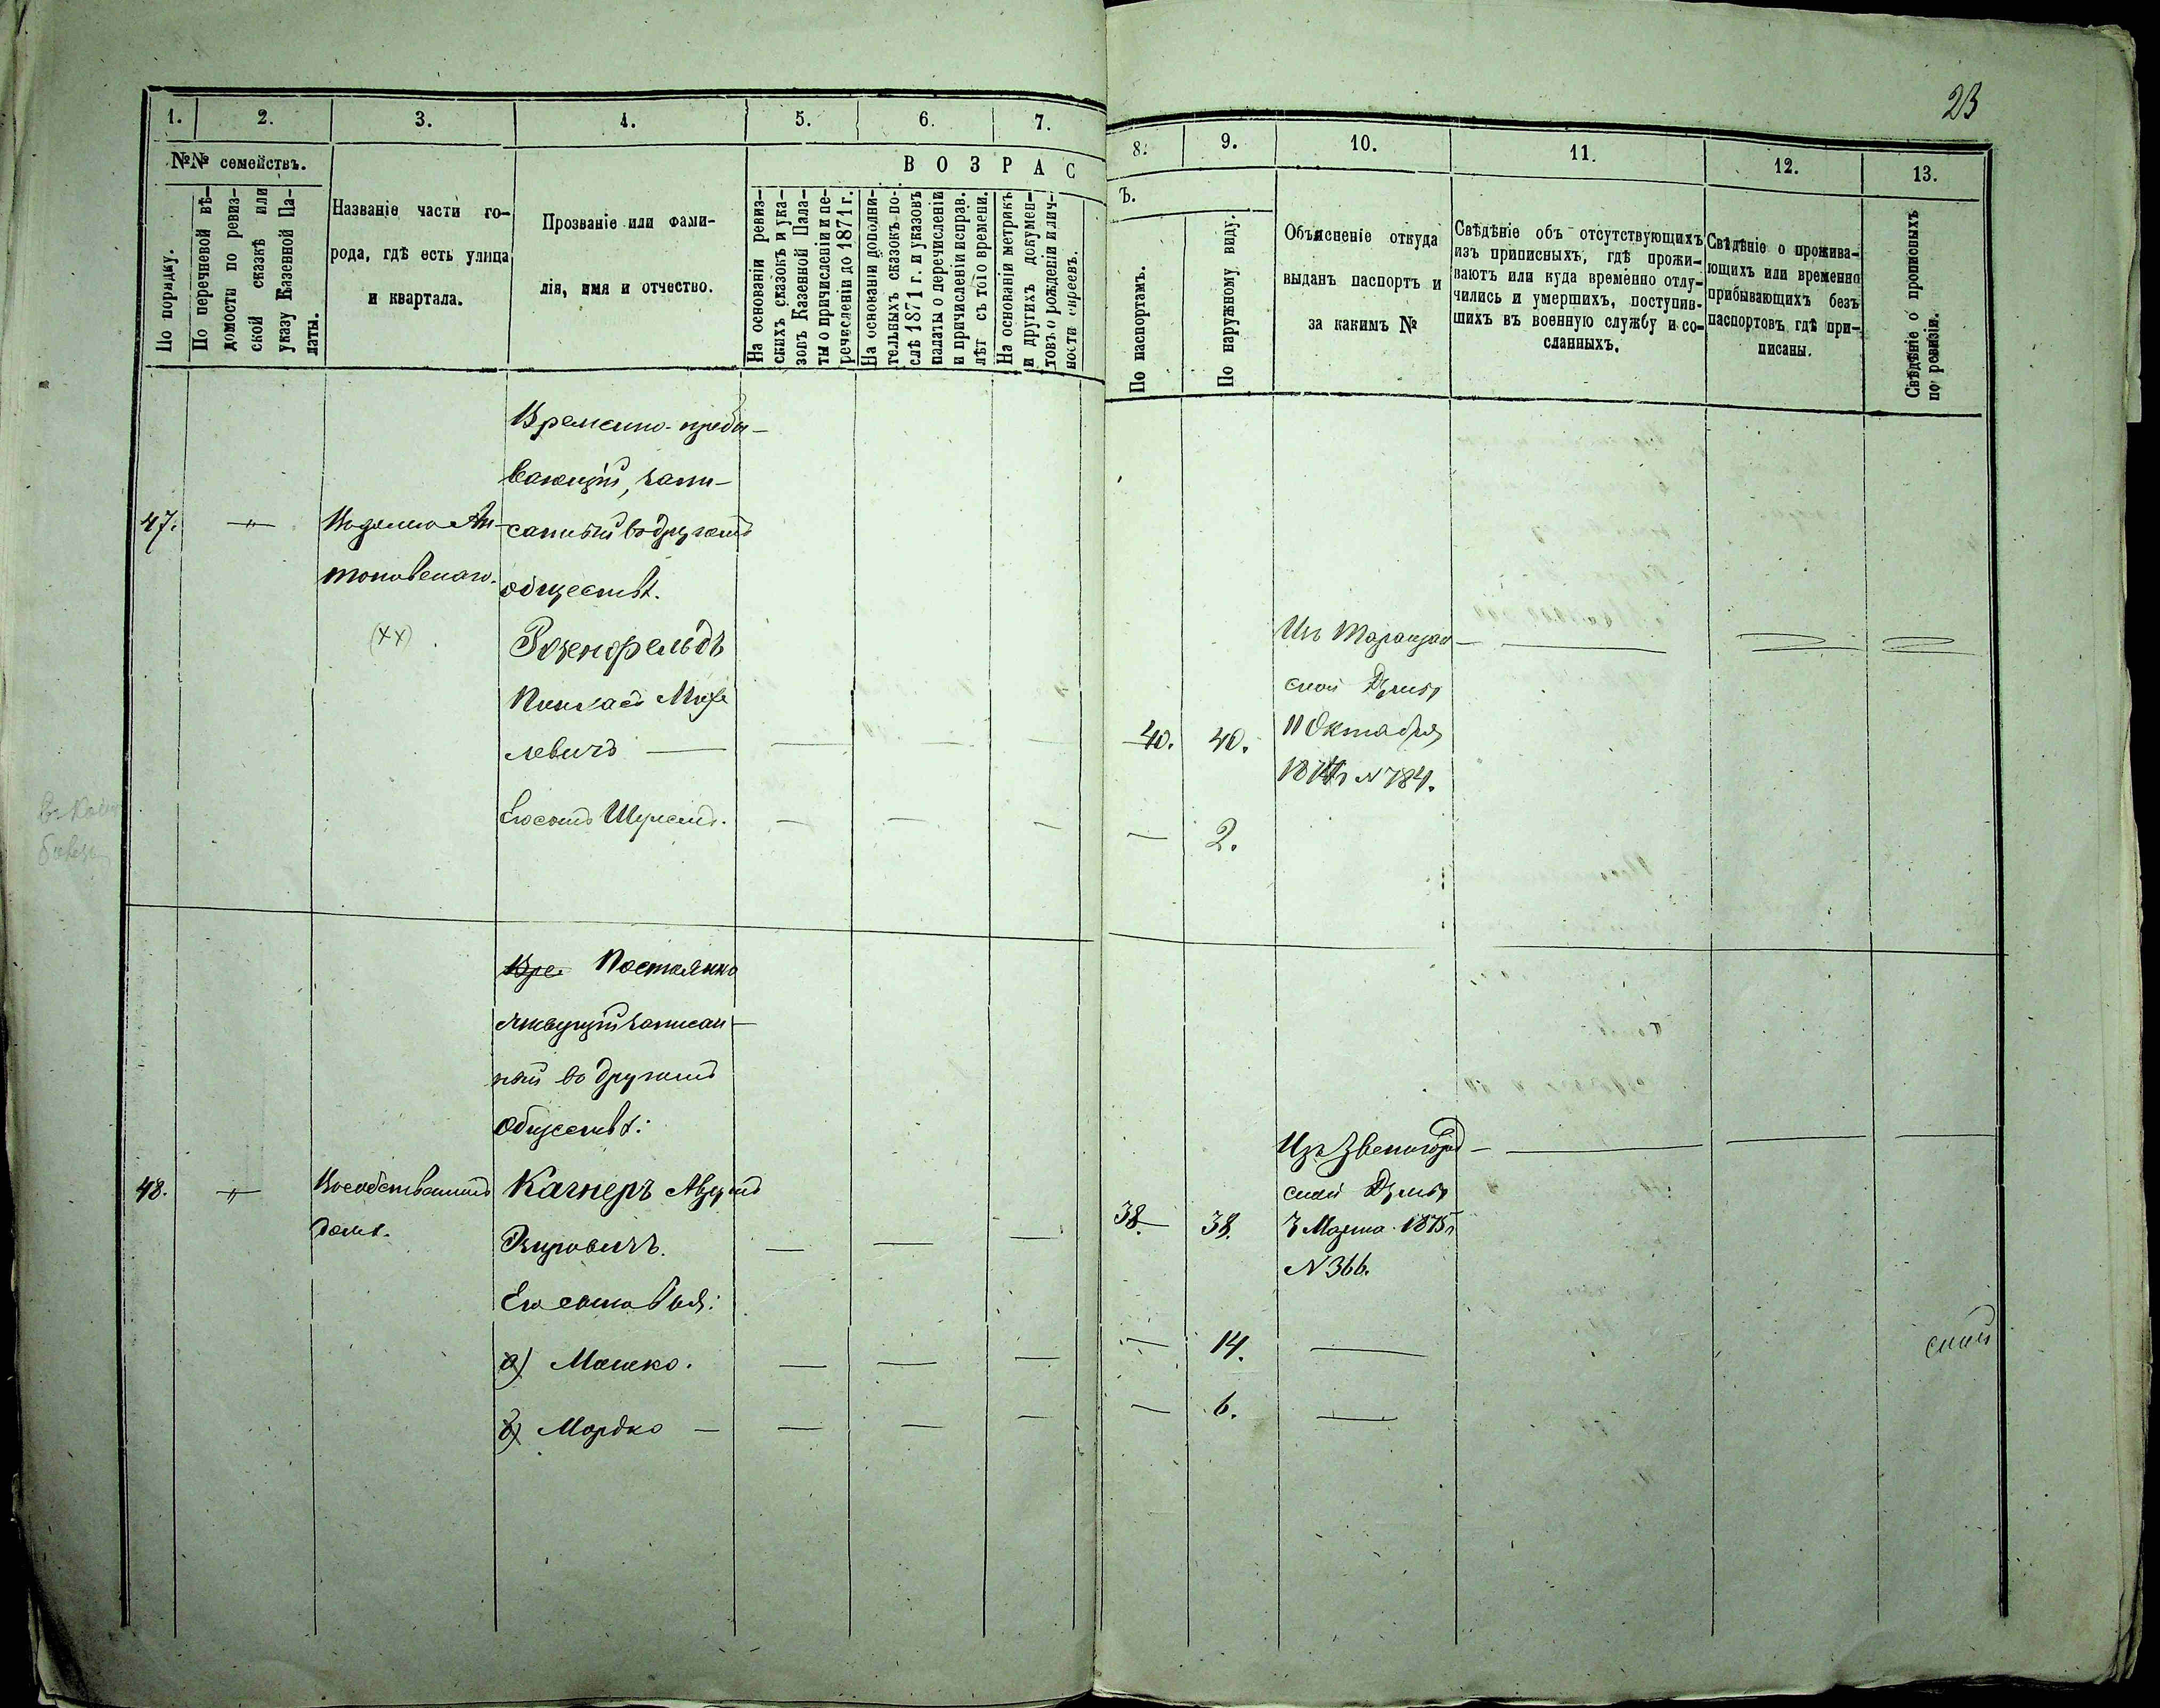 23
1. 2. 3. 4. 5. 6. 7.
8. 9. 10. 11. 12. 13.
№№ семействъ.
По порядку.
По перечневой вѣ-
домости по ревиз-
ской сказкѣ или
указу Казенной Па-
латы.
Названіе части го-
рода, гдѣ есть улица
и квартала.
Прозваніе или фами-
лія, имя и отчество.
ВОЗРАС
Ъ.
На основаніи ревиз-
скихъ сказокъ и ука-
зовъ Казенной Пала-
ты о причисленіи и пе-
речисленіи до 1871 г.
На основаніи дополни-
тельныхъ сказокъ по-
слѣ 1871 г. и указовъ
палаты о перечисленіи
и причисленіи исправ.
лѣт съ того времени.
На основаніи метрикъ
и другихъ докумен-
товъ о рожденіи и лич-
ности евреевъ.
По паспортамъ.
По наружному виду.
Объясненіе откуда
выданъ паспортъ и
за какимъ №
Свѣдѣніе объ отсутствующихъ
изъ приписныхъ, гдѣ прожи-
ваютъ или куда временно отлу-
чились и умершихъ, поступив-
шихъ въ военную службу и со-
сланныхъ.
Свѣдѣніе о прожива-
ющихъ или временно
прибывающихъ безъ
паспортовъ, гдѣ при-
писаны.
Свѣдѣніе о прописныхъ
по ревизіи.
Временно-пребы-
вающій, запи-
47. — " — Ан- санный въ другомъ
тоновскаго. обществѣ.
(xx) Розенфельдъ
Пинхасъ
левичъ — — — — 40. 40.
Его сынъ — — — — 2.
Изъ Таращан-
ской Думы
11 Октября
N 784.
Вре Постоянно
живущій записан-
ный въ другомъ
обществѣ:
48. — " — Въ собственномъ Кагнеръ
домѣ.
— — — 38. 38.
Изъ Звенигород-
ской Думы
3 Марта 1875 г
N 366.
Его сыновья:
а) Мошко. — — — — 14. —
б) Мордко — — — — — 6. —